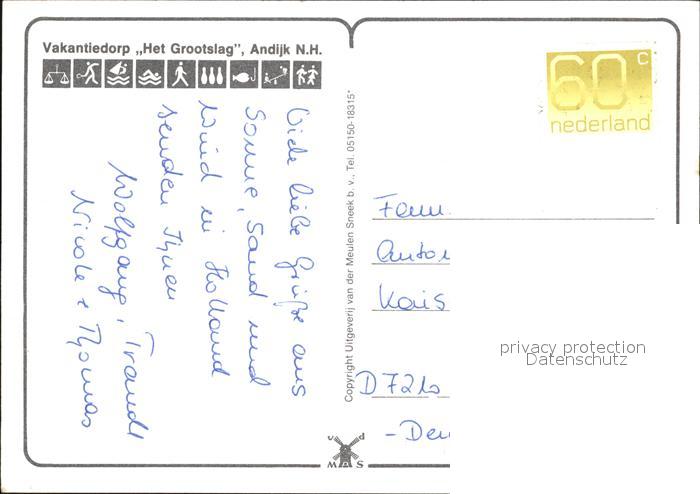 Vakantiedorp „Het Grootslag", Andijk N.H.
Viele liebe Grüße aus
Sonne, Sand und
Wind in Holland
senden Ihnen
Wolfgang, Traudl
Nicole + Thomas
Copyright Uitgeverij van der Meulen Sneek b.v., Tel. 05150-18315*
60 c
nederland
Fam.
Anton
Kais
D 7210
- Deu
privacy protection
Datenschutz
v d
M A S